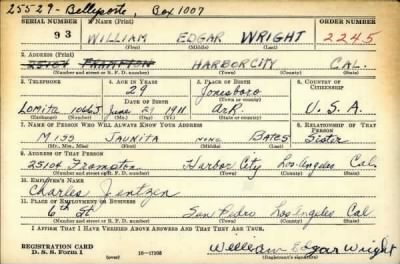 25529 - Belleporte Box 1007
SERIAL NUMBER 1. NAME (Print) ORDER NUMBER
93 WILLIAM EDGAR WRIGHT 2245
(First) (Middle) (Last)
2. ADDRESS (Print)
25104 FRAMPTON HARBOR CITY CAL.
(Number and street or R. F. D. number) (Town) (County) (State)
3. TELEPHONE 4. AGE IN YEARS 5. PLACE OF BIRTH 6. COUNTRY OF CITIZENSHIP
29 Jonesboro
DATE OF BIRTH (Town or county)
Lomita 1066J June 21 1911 Ark. U. S. A.
(Exchange) (Number) (Mo.) (Day) (Yr.) (State or country)
7. NAME OF PERSON WHO WILL ALWAYS KNOW YOUR ADDRESS 8. RELATIONSHIP OF THAT PERSON
Miss Jaunita none Bates Sister
(Mr., Mrs., Miss) (First) (Middle) (Last)
9. ADDRESS OF THAT PERSON
25104 Frampton Harbor City Los Angeles Cal
(Number and street or R. F. D. number) (Town) (County) (State)
10. EMPLOYER'S NAME
Charles Jentzen
11. PLACE OF EMPLOYMENT OR BUSINESS
6th St San Pedro Los Angeles Cal
(Number and street or R. F. D. number) (Town) (County) (State)
I AFFIRM THAT I HAVE VERIFIED ABOVE ANSWERS AND THAT THEY ARE TRUE.
REGISTRATION CARD
D. S. S. Form 1 16-17105 William Edgar Wright
(Registrant's signature)